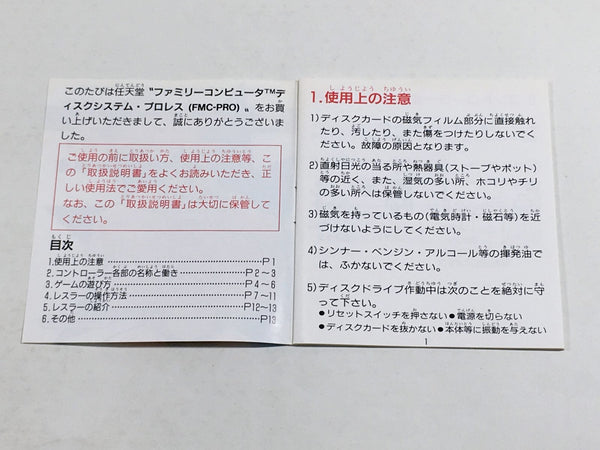 このたびは任天堂〝ファミリーコンピュータTMデ
ィスクシステム・プロレス (FMC-PRO)〟をお買
い上げいただきまして、誠にありがとうございま
した。
ご使用の前に取扱い方、使用上の注意等、こ
の「取扱説明書」をよくお読みいただき、正
しい使用法でご愛用ください。
なお、この「取扱説明書」は大切に保管して
ください。
目次
1.使用上の注意 P1
2.コントローラー各部の名称と働き P2～3
3.ゲームの遊び方 P4～6
4.レスラーの操作方法 P7～11
5.レスラーの紹介 P12～13
6.その他 P13
1.使用上の注意
1)ディスクカードの磁気フィルム部分に直接触れ
たり、汚したり、また傷をつけたりしないでく
ださい。故障の原因となります。
2)直射日光の当る所や熱器具(ストーブやポット)
等の近く、また、湿気の多い所、ホコリやチリ
の多い所へは保管しないでください。
3)磁気を持っているもの(電気時計・磁石等)を近
づけないようにしてください。
4)シンナー・ベンジン・アルコール等の揮発油で
は、ふかないでください。
5)ディスクドライブ作動中は次のことを絶対に守
って下さい。
●リセットスイッチを押さない●電源を切らない
●ディスクカードを抜かない●本体等に振動を与えない
1